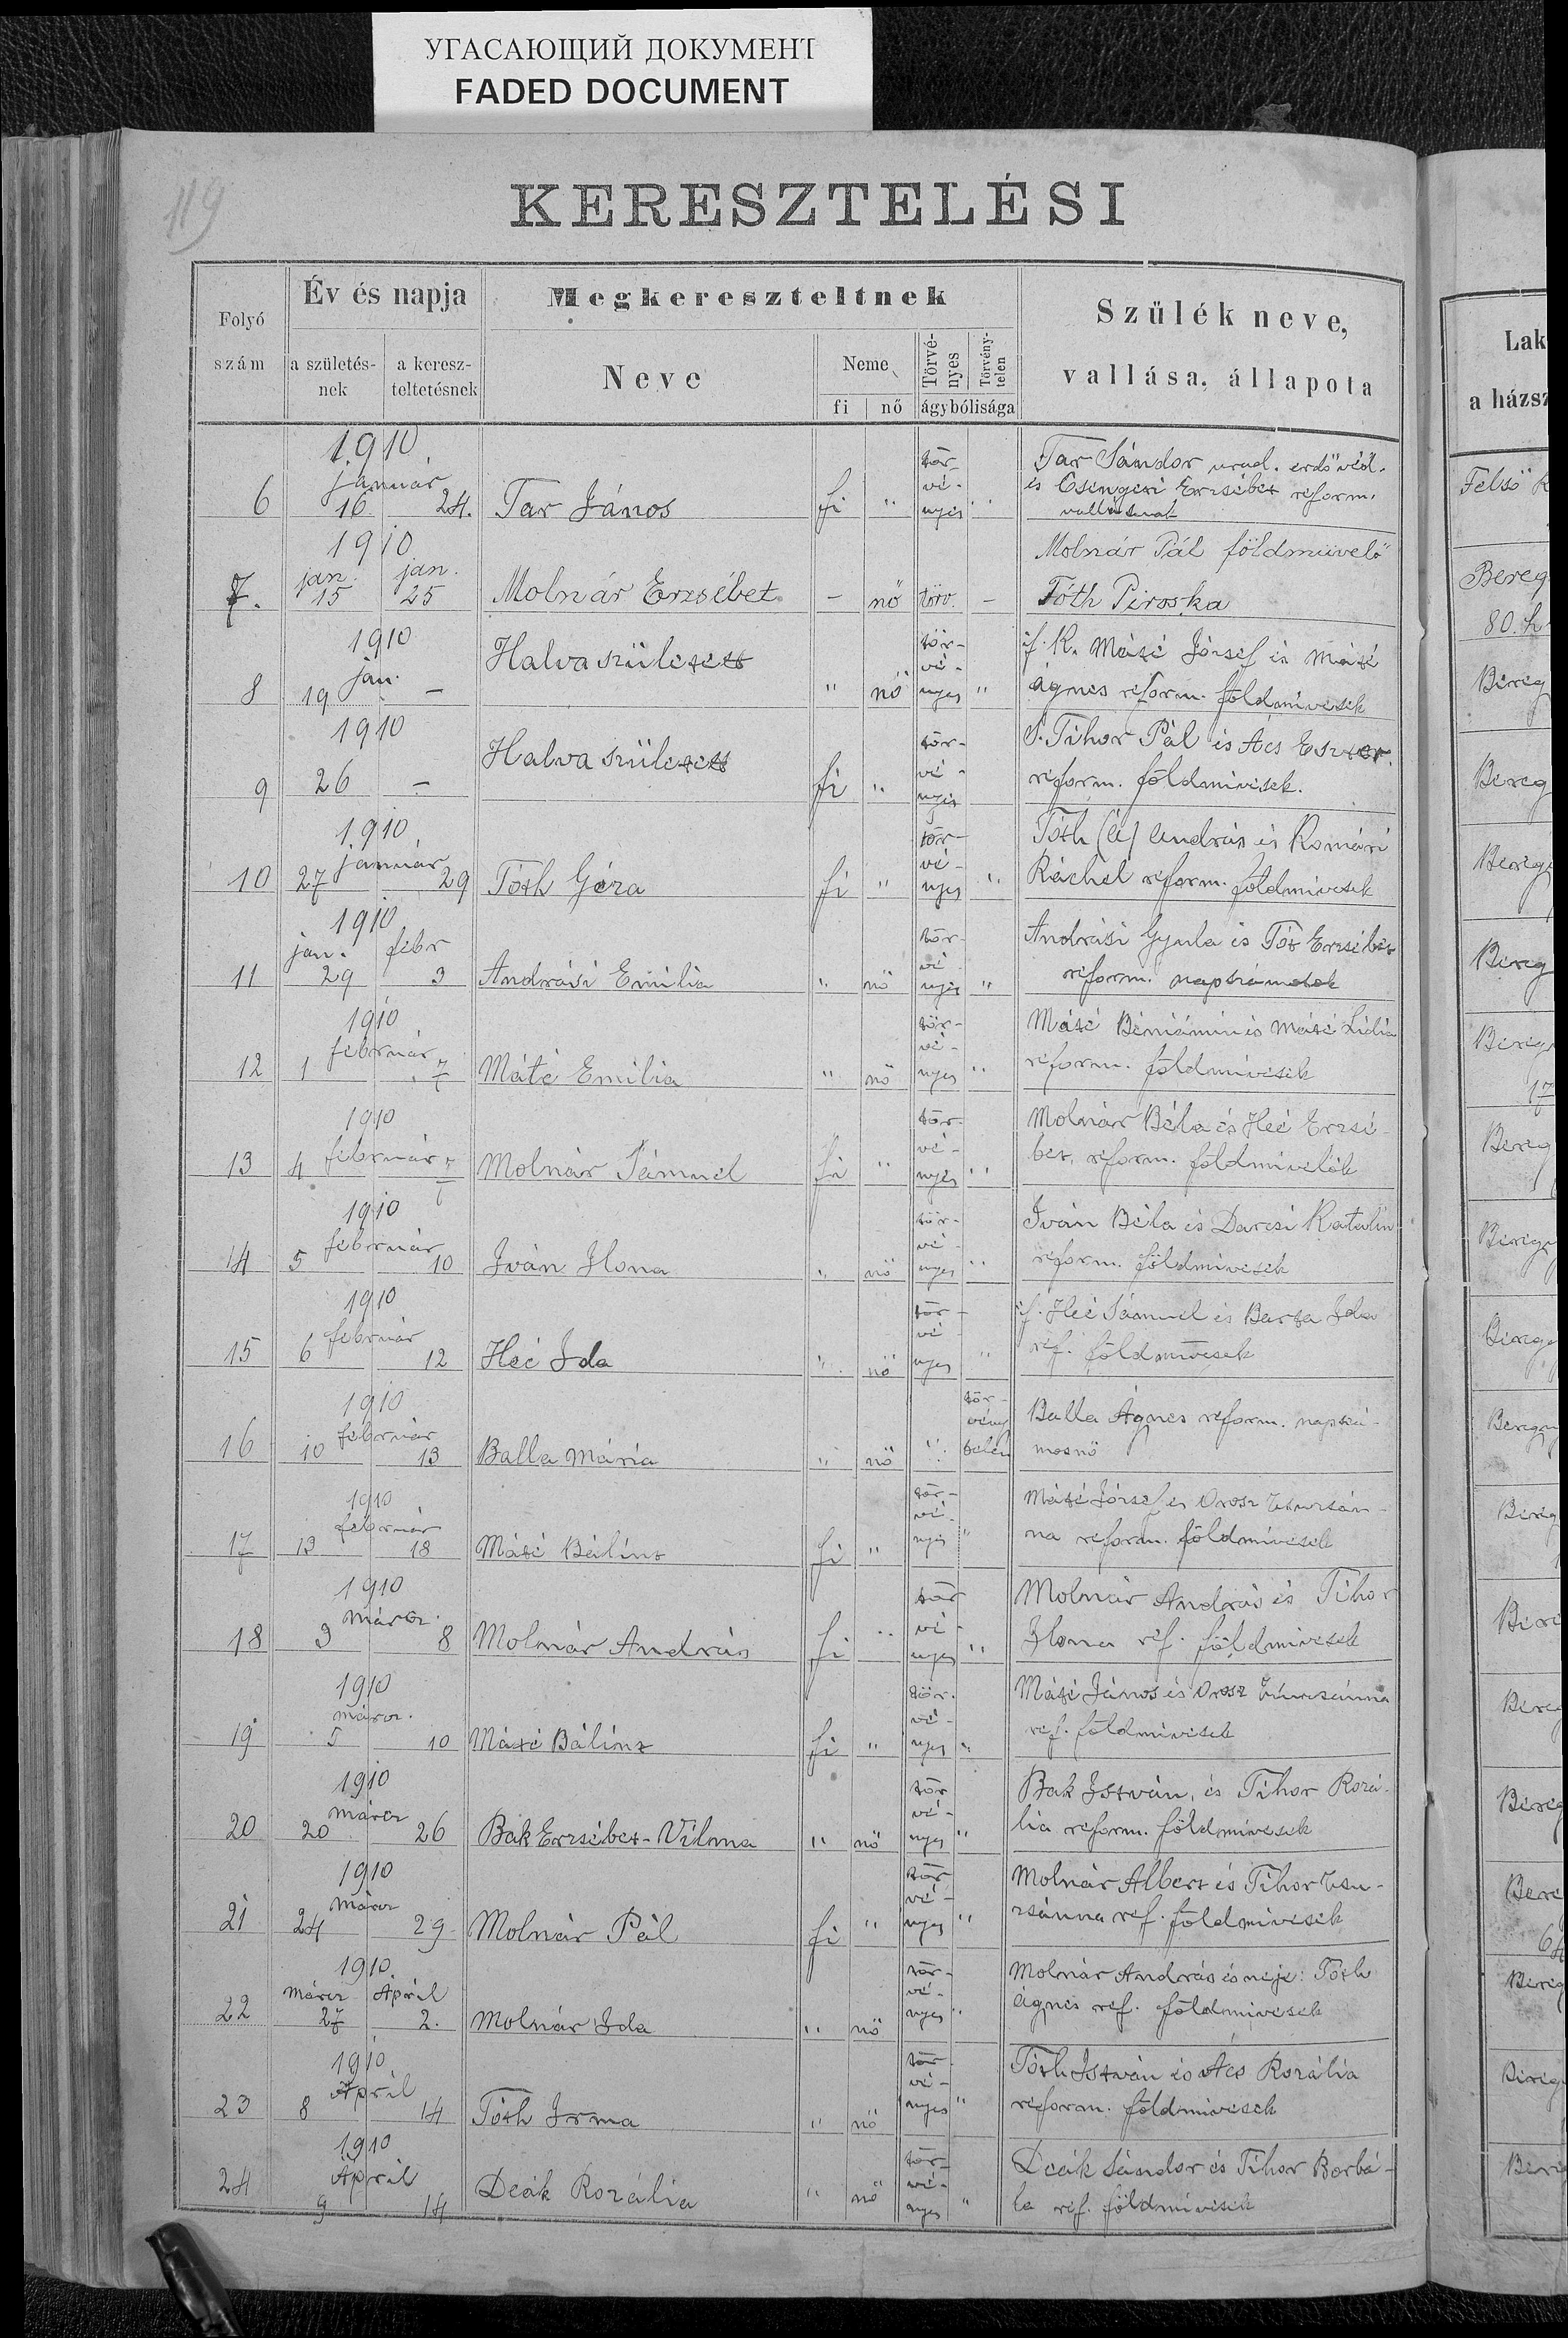 УГАСАЮЩИЙ ДОКУМЕНТ
FADED DOCUMENT
119
KERESZTELÉSI
Folyó szám
Év és napja
a születés-nek
a keresz-teltetésnek
Megkereszteltnek
Neve
Neme
fi
nő
Törvé-nyes
Törvény-telen
ágybólisága
Szülék neve,
vallása, állapota
Lak
a házsz
1910
január
6 16 24. Tar János fi " tör-vé-nyes " Tar Sándor urad. erdővéd.
és Csengeri Erzsébet reform.
vallásuak
Felső K
1910
jan. jan.
7. 15 25 Molnár Erzsébet - nő törv. - Molnár Pál földművelő
Tóth Piroska
Bereg
80. h
1910
jan.
8 19 - Halva született " nő tör-vé-nyes " if. K. Máté József és Máté
Ágnes reform. földmivesek
Bereg
1910
9 26 - Halva született fi " tör-vé-nyes S. Tihor Pál és Ács Eszter.
reform. földmivesek.
Bereg
1910
január
10 27 29 Tóth Géza fi " tör-vé-nyes " Tóth András és Komári
Ráchel reform. földmivesek
Bereg
1910
jan. febr
11 29 3 Andrási Emilia " nő tör-vé-nyes " Andrási Gyula és Tót Erzsébet
reform. napszámosok
Bereg
1910
február
12 1 7 Máté Emilia " nő tör-vé-nyes " Máté Béniámin és Máté Lidia
reform. földmivesek
Bereg
17
1910
február
13 4 7 Molnár Sámuel fi " tör-vé-nyes " Molnár Béla és Heé Erzsé-
bet, reform. földmivelők
Bereg
1910
február
14 5 10 Iván Ilona " nő tör-vé-nyes " Iván Béla és Darcsi Katalin
reform. földmivesek
Bereg
1910
február
15 6 12 Heé Ida " nő tör-vé-nyes " if. Heé Sámuel és Barta Ida
ref. földmivesek
Bereg
1910
február
16 10 13 Balla Mária " nő " tör-vény-telen Balla Ágnes reform. napszá-
mosnő
Bereg
1910
február
17 13 18 Máté Bálint fi " tör-vé-nyes " Máté József és Orosz Zsuzsán-
na reform. földmivesek
Bereg
1910
márcz.
18 3 8 Molnár András fi " tör-vé-nyes " Molnár András és Tihor
Ilona ref. földmivesek
Bere
1910
márcz.
19 5 10 Máté Bálint fi " tör-vé-nyes " Máté János és Orosz Zsuzsánna
ref. földmivesek
Bereg
1910
márcz
20 20 26 Bak Erzsébet-Vilma " nő tör-vé-nyes " Bak István, és Tihor Rozá-
lia reform. földmivesek
Bereg
1910
márcz
21 24 29 Molnár Pál fi " tör-vé-nyes " Molnár Albert és Tihor Zsu-
zsánna ref. földmivesek
Bere
64
1910.
márcz Április
22 27 2. Molnár Ida " nő tör-vé-nyes " Molnár András és neje: Tóth
Ágnes ref. földmivesek
Bereg
1910
Április
23 8 14 Tóth Irma " nő tör-vé-nyes " Tóth István és Ács Rozália
reform. földmivesek
Bereg
1910
Április
24 9 14 Deák Rozália " nő tör-vé-nyes " Deák Sándor és Tihor Borbá-
la ref. földmivesek
Bereg